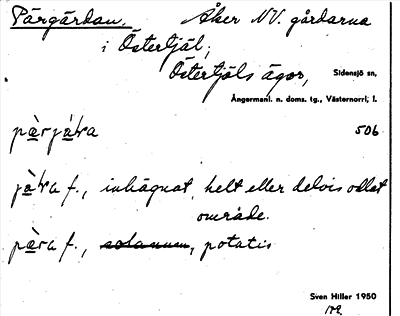 Pärgärdan. Åker NV. gårdarna
i Östertjäl,
Östertjäls ägor, Sidensjö sn,
Ångermanl. n. doms. tg., Västernorrl. l.
pàrjàka 506
jàka f., inhägnat, helt eller delvis odlat
område.
pàra f., solanum, potatis
Sven Hiller 1950